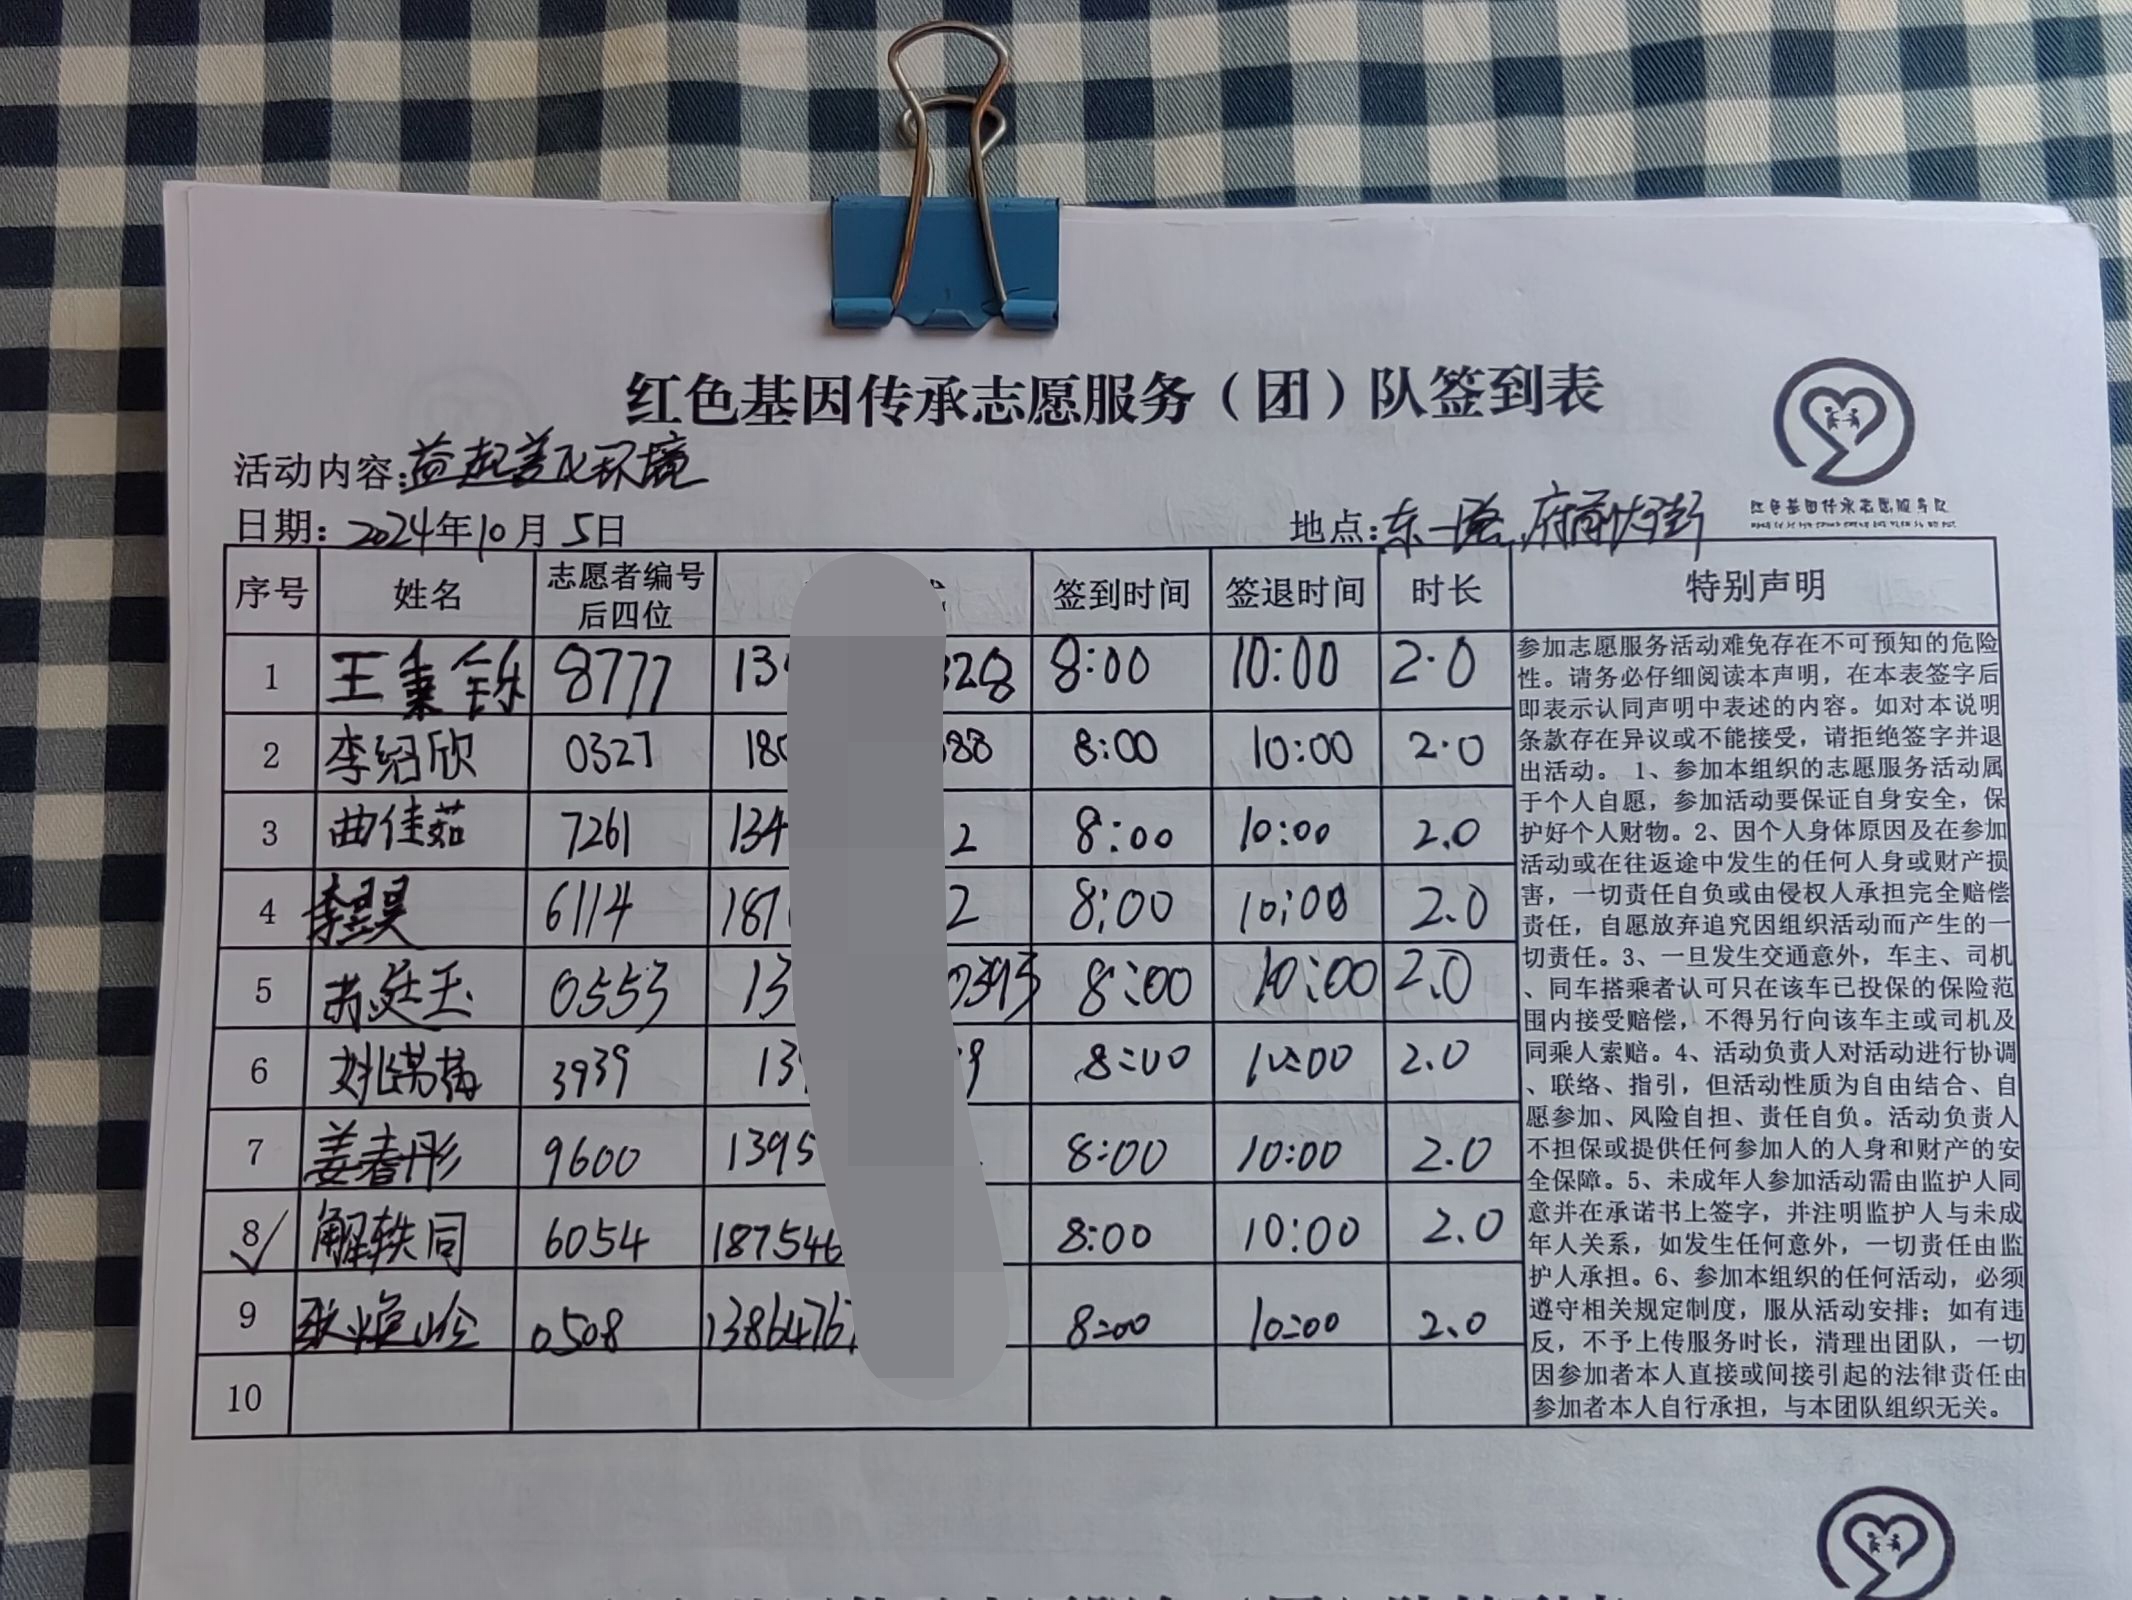 红色基因传承志愿服务（团）队签到表
活动内容:益起美化环境
红色基因传承志愿服务队
日期: 2024年10月5日 地点:东一路、府前大街
序号 姓名 志愿者编号后四位 签到时间 签退时间 时长 特别声明
1 王秉铄 8777 13 328 8:00 10:00 2.0
2 李绍欣 0327 180 388 8:00 10:00 2.0
3 曲佳茹 7261 134 2 8:00 10:00 2.0
4 李昱昊 6114 187 2 8:00 10:00 2.0
5 庭玉 0553 13 0393 8:00 10:00 2.0
6 姚 3939 13 9 8:00 10:00 2.0
7 姜春彤 9600 1395 8:00 10:00 2.0
8 解轶同 6054 187546 8:00 10:00 2.0
9 0508 1386476 8:00 10:00 2.0
10
参加志愿服务活动难免存在不可预知的危险
性。请务必仔细阅读本声明，在本表签字后
即表示认同声明中表述的内容。如对本说明
条款存在异议或不能接受，请拒绝签字并退
出活动。 1、参加本组织的志愿服务活动属
于个人自愿，参加活动要保证自身安全，保
护好个人财物。2、因个人身体原因及在参加
活动或在往返途中发生的任何人身或财产损
害，一切责任自负或由侵权人承担完全赔偿
责任，自愿放弃追究因组织活动而产生的一
切责任。3、一旦发生交通意外，车主、司机
、同车搭乘者认可只在该车已投保的保险范
围内接受赔偿，不得另行向该车主或司机及
同乘人索赔。4、活动负责人对活动进行协调
、联络、指引，但活动性质为自由结合、自
愿参加、风险自担、责任自负。活动负责人
不担保或提供任何参加人的人身和财产的安
全保障。5、未成年人参加活动需由监护人同
意并在承诺书上签字，并注明监护人与未成
年人关系，如发生任何意外，一切责任由监
护人承担。6、参加本组织的任何活动，必须
遵守相关规定制度，服从活动安排；如有违
反，不予上传服务时长，清理出团队，一切
因参加者本人直接或间接引起的法律责任由
参加者本人自行承担，与本团队组织无关。